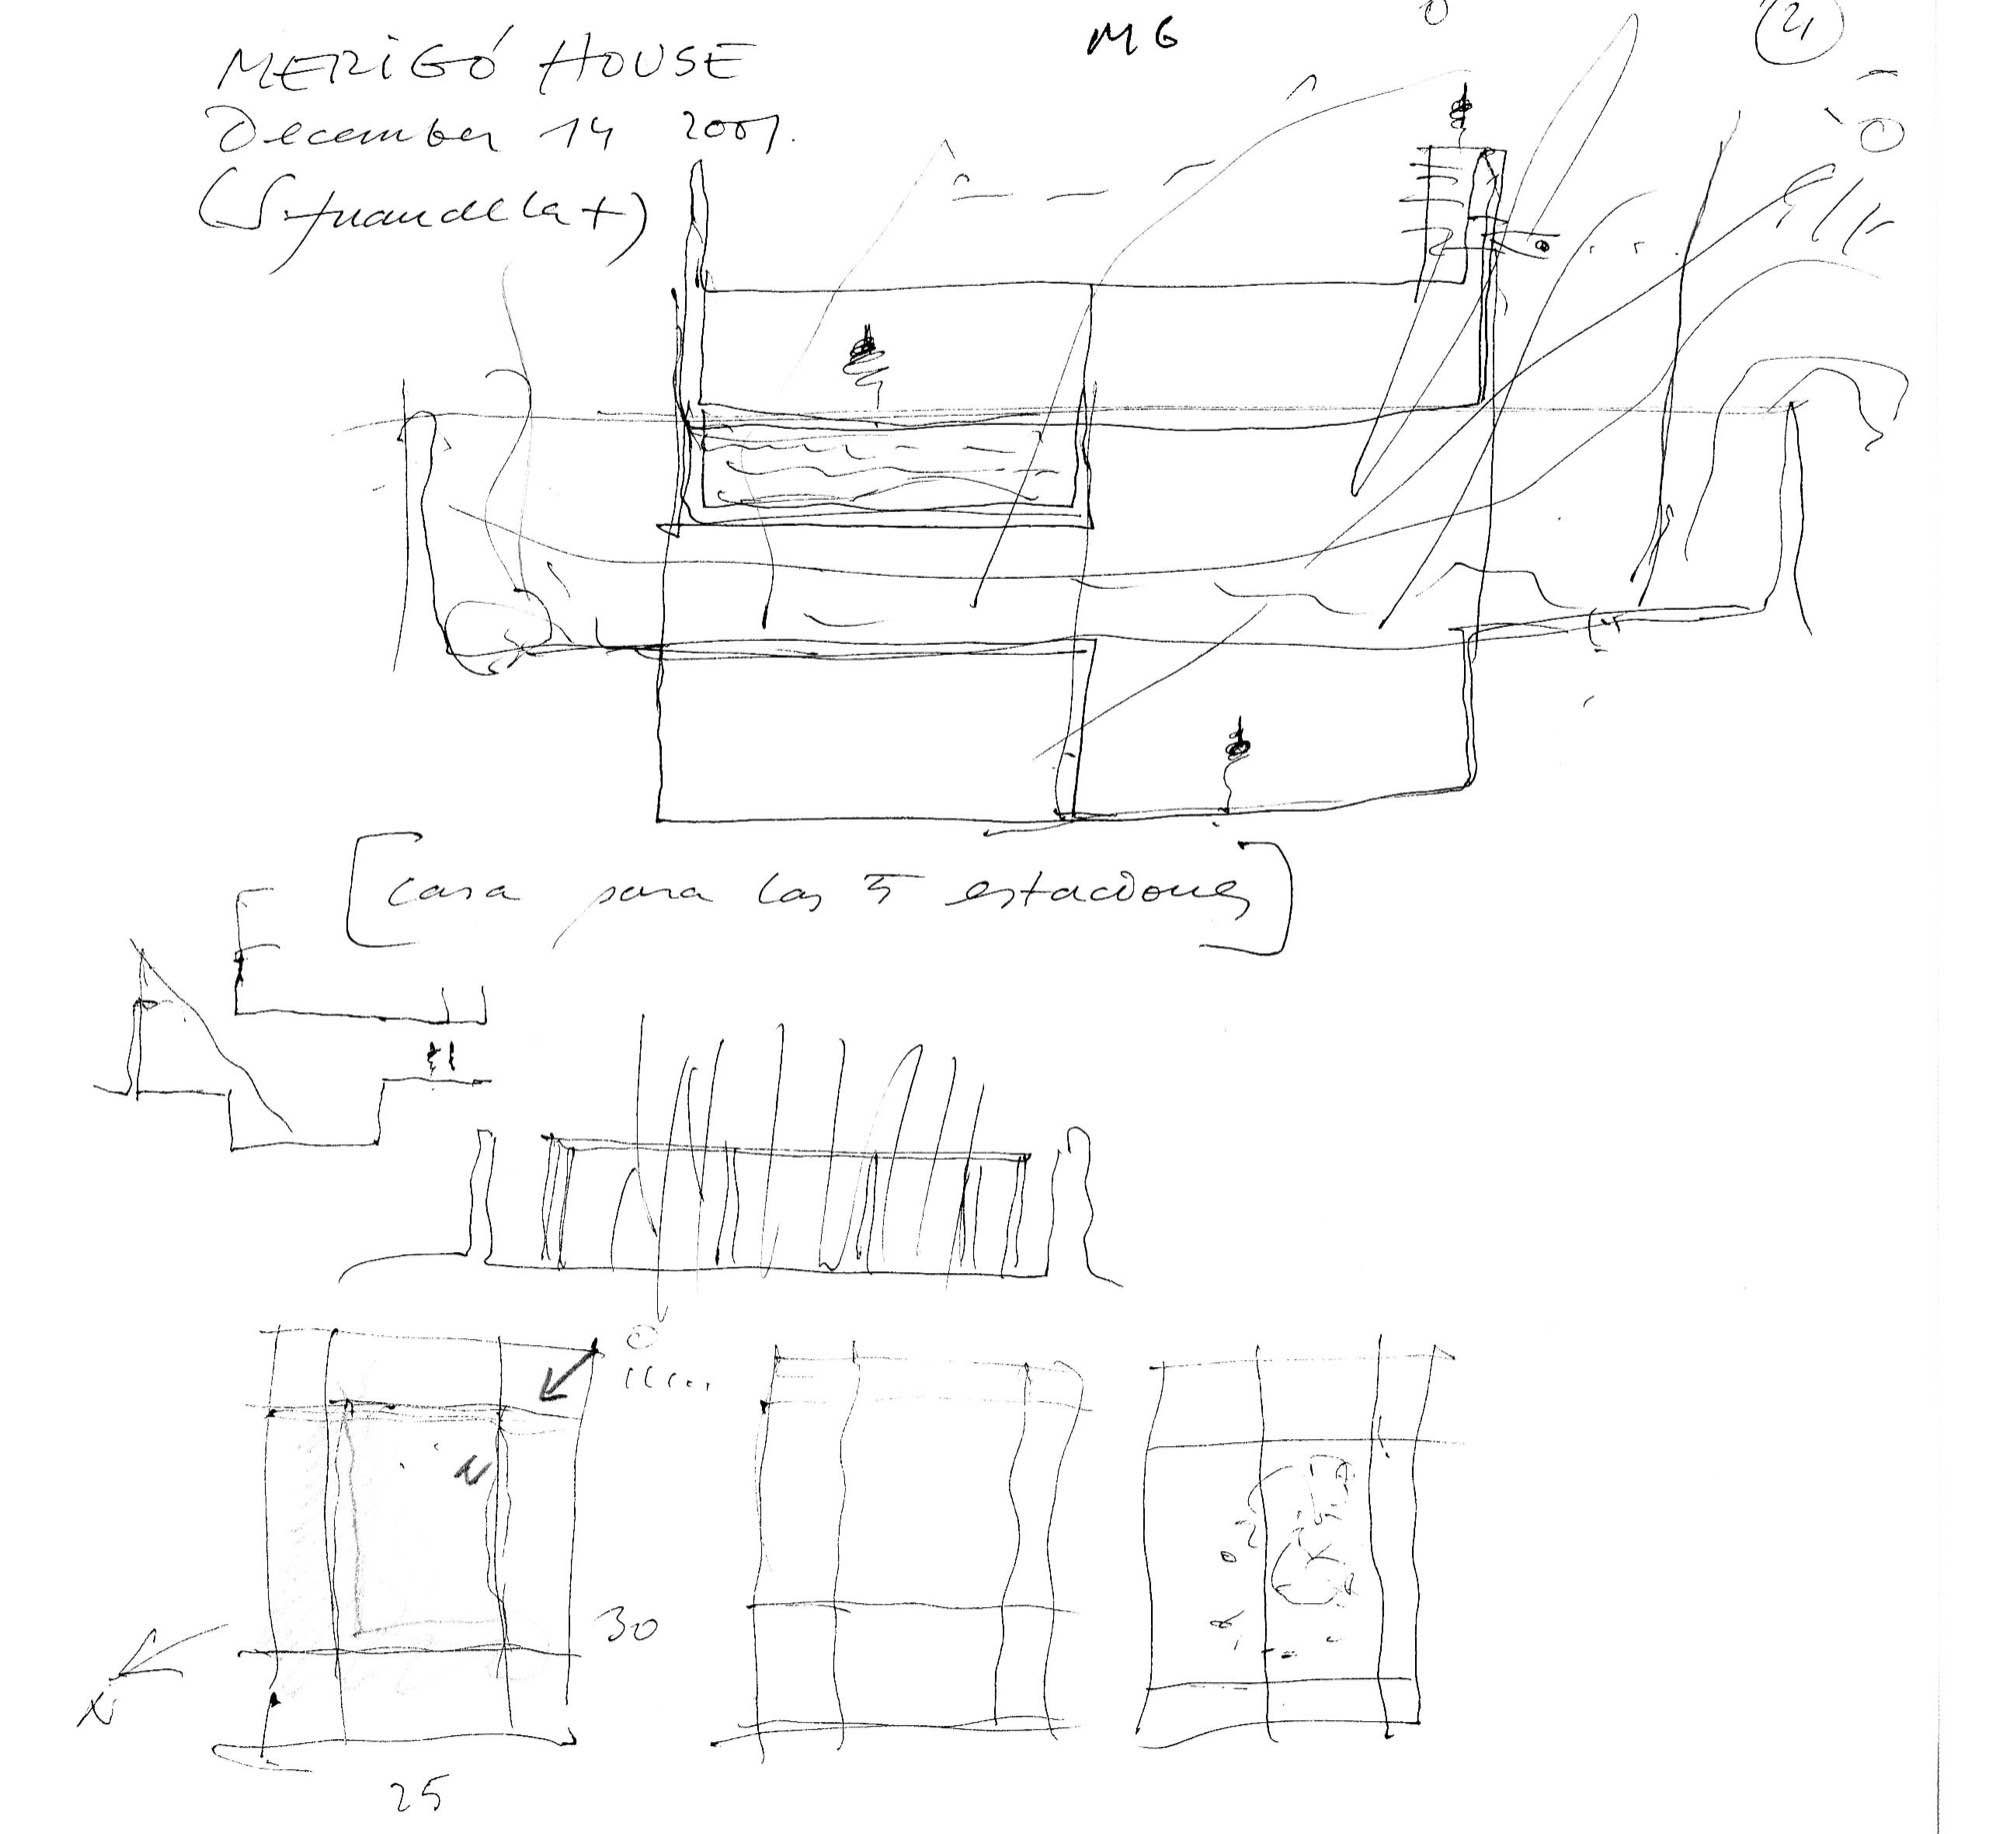 MERIGÓ HOUSE
December 14 2001.
(S. Juan de la +)
M6
4
[casa para las 5 estaciones]
N
30
N
25